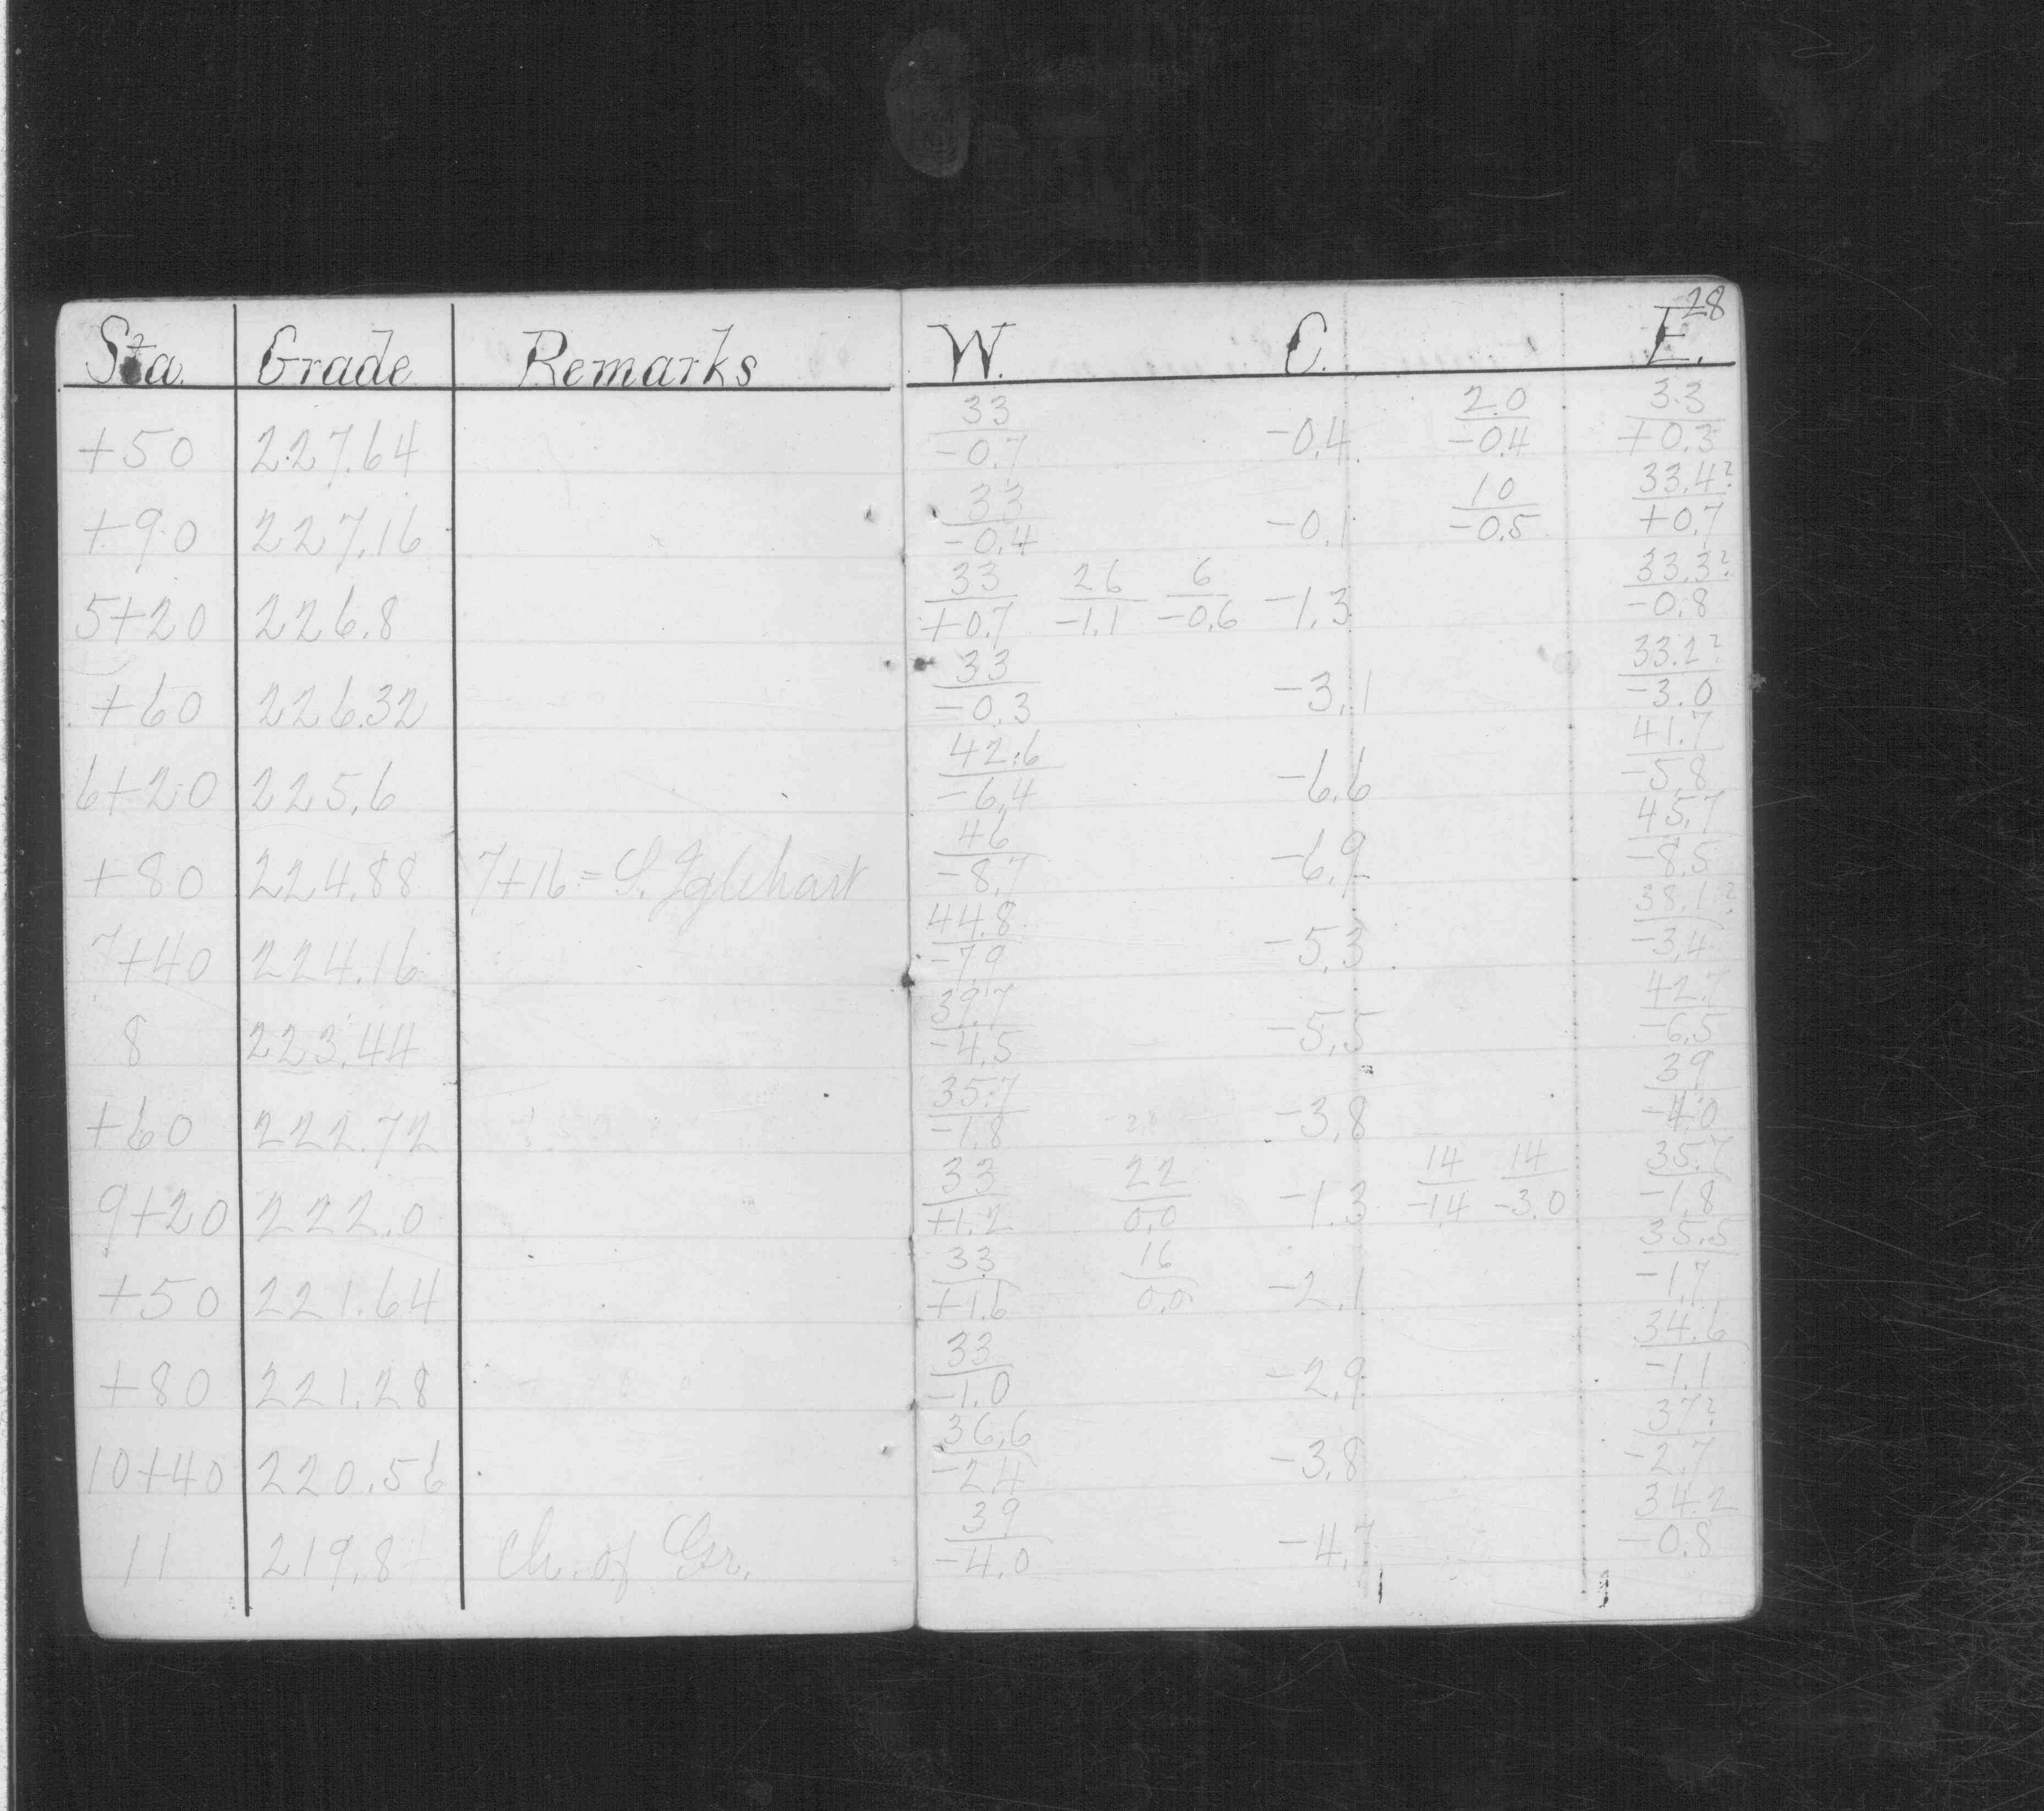 28
Sta. Grade Remarks W. C. E.
+50 227.64 33/-0.7 -0.4 20/-0.4 33/+0.3
+90 227.16 33/-0.4 -0.1 10/-0.5 33.4?/+0.7
5+20 226.8 33/+0.7 26/-1.1 6/-0.6 -1.3 33.3?/-0.8
+60 226.32 33/-0.3 -3.1 33.2?/-3.0
6+20 225.6 42.6/-6.4 -6.6 41.7/-5.8
+80 224.88 7+16 = S. Iglehart 46/-8.7 -6.9 45.7/-8.5
7+40 224.16 44.8/-7.9 -5.3 38.1?/-3.4
8 223.44 39.7/-4.5 -5.5 42.7/-6.5
+60 222.72 35.7/-1.8 -3.8 39/-4.0
9+20 222.0 33/+1.2 22/0.0 -1.3 14/-1.4 14/-3.0 35.7/-1.8
+50 221.64 33/+1.6 16/0.0 -2.1 35.5/-1.7
+80 221.28 33/-1.0 -2.9 34.6/-1.1
10+40 220.56 36.6/-2.4 -3.8 37?/-2.7
11 219.84 Ch. of Gr. 39/-4.0 -4.7 34.2/-0.8